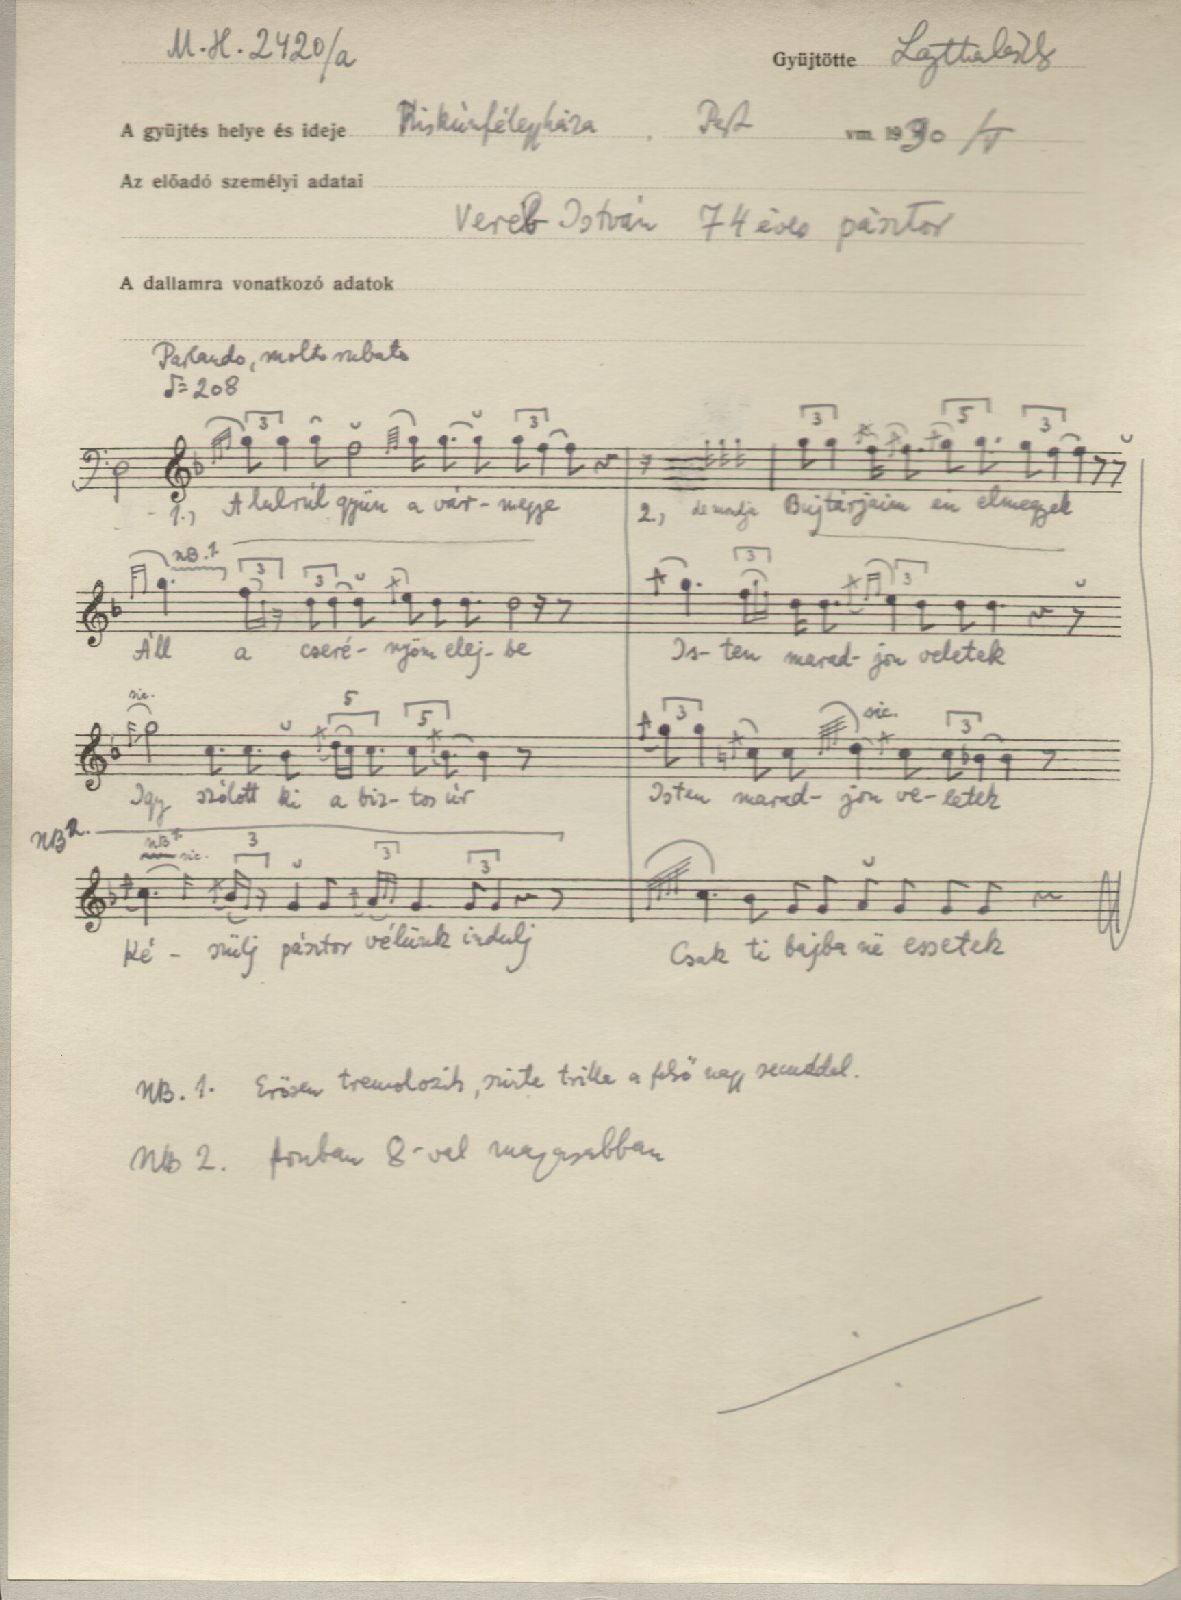 M.H. 2420/a
Gyüjtötte Lajtha László
A gyüjtés helye és ideje Kiskúnfélegyháza Pest vm. 1930/V
Az előadó személyi adatai
Veréb István 74 éves pásztor
A dallamra vonatkozó adatok
Parlando, molto rubato
♪=208
3 3 3 5 3
1., Alulrúl gyün a vár- megye 2., de mondja Bujtárjaim én elmegyek
NB.1 3 3 3 3
Áll a cseré- nyöm elej- be Is- ten marad- jon veletek
sic. 5 5 3 sic. 3
Igy szólott ki a biz- tos úr Isten marad- jon ve- letek
NB2.
NB1. sic. 3 3 3
Ké- szülj pásztor vélünk indulj Csak ti bajba në essetek
NB. 1. Erősen tremolozik, szinte trilla a felső nagy secunddal.
NB 2. fonban 8-val magasabban